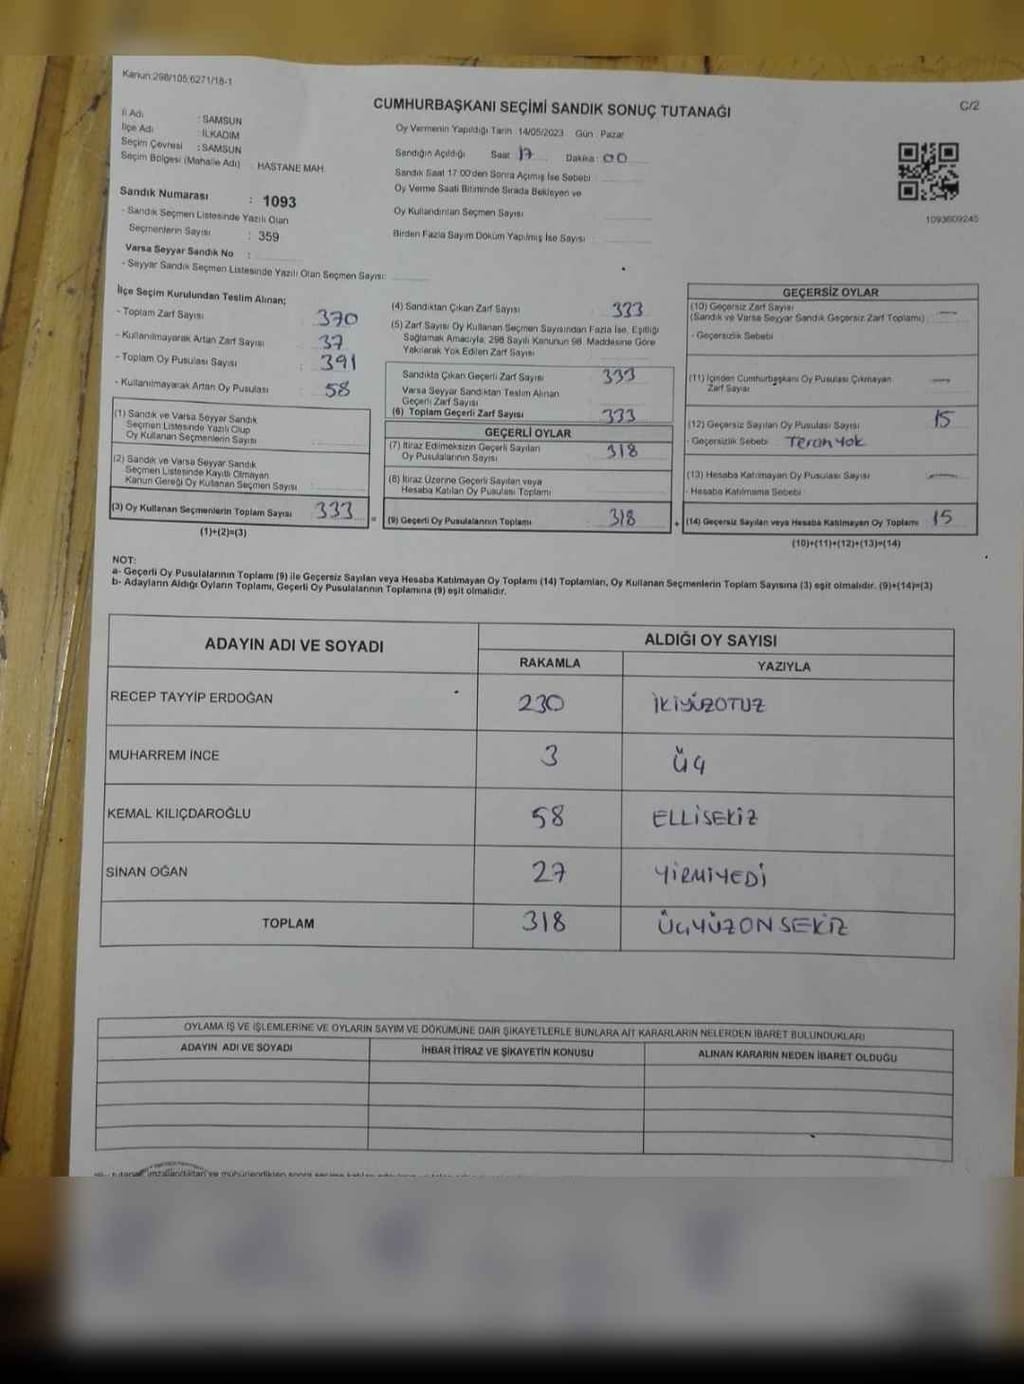 Kanun:298/105;6271/18-1
C/2
CUMHURBAŞKANI SEÇİMİ SANDIK SONUÇ TUTANAĞI
İl Adı : SAMSUN
İlçe Adı : İLKADIM
Seçim Çevresi : SAMSUN
Seçim Bölgesi (Mahalle Adı) : HASTANE MAH.
Sandık Numarası : 1093
- Sandık Seçmen Listesinde Yazılı Olan
Seçmenlerin Sayısı : 359
Varsa Seyyar Sandık No :
- Seyyar Sandık Seçmen Listesinde Yazılı Olan Seçmen Sayısı:
Oy Vermenin Yapıldığı Tarih : 14/05/2023 Gün : Pazar
Sandığın Açıldığı Saat: 17 Dakika: 00
Sandık Saat 17:00'den Sonra Açılmış İse Sebebi :
Oy Verme Saati Bitiminde Sırada Bekleyen ve
Oy Kullandırılan Seçmen Sayısı :
Birden Fazla Sayım Döküm Yapılmış İse Sayısı :
1093609245
İlçe Seçim Kurulundan Teslim Alınan;
- Toplam Zarf Sayısı : 370
- Kullanılmayarak Artan Zarf Sayısı : 37
- Toplam Oy Pusulası Sayısı : 391
- Kullanılmayarak Artan Oy Pusulası : 58
(1) Sandık ve Varsa Seyyar Sandık
Seçmen Listesinde Yazılı Olup
Oy Kullanan Seçmenlerin Sayısı
(2) Sandık ve Varsa Seyyar Sandık
Seçmen Listesinde Kayıtlı Olmayan
Kanun Gereği Oy Kullanan Seçmen Sayısı
(3) Oy Kullanan Seçmenlerin Toplam Sayısı 333
(1)+(2)=(3)
(4) Sandıktan Çıkan Zarf Sayısı 333
(5) Zarf Sayısı Oy Kullanan Seçmen Sayısından Fazla İse, Eşitliği
Sağlamak Amacıyla, 298 Sayılı Kanunun 98. Maddesine Göre
Yakılarak Yok Edilen Zarf Sayısı
Sandıkta Çıkan Geçerli Zarf Sayısı 333
Varsa Seyyar Sandıktan Teslim Alınan
Geçerli Zarf Sayısı
(6) Toplam Geçerli Zarf Sayısı 333
GEÇERLİ OYLAR
(7) İtiraz Edilmeksizin Geçerli Sayılan
Oy Pusulalarının Sayısı 318
(8) İtiraz Üzerine Geçerli Sayılan veya
Hesaba Katılan Oy Pusulası Toplamı
= (9) Geçerli Oy Pusulalarının Toplamı 318
GEÇERSİZ OYLAR
(10) Geçersiz Zarf Sayısı
(Sandık ve Varsa Seyyar Sandık Geçersiz Zarf Toplamı) —
- Geçersizlik Sebebi
(11) İçinden Cumhurbaşkanı Oy Pusulası Çıkmayan
Zarf Sayısı —
(12) Geçersiz Sayılan Oy Pusulası Sayısı 15
- Geçersizlik Sebebi
(13) Hesaba Katılmayan Oy Pusulası Sayısı —
- Hesaba Katılmama Sebebi
+ (14) Geçersiz Sayılan veya Hesaba Katılmayan Oy Toplamı 15
(10)+(11)+(12)+(13)=(14)
NOT:
a- Geçerli Oy Pusulalarının Toplamı (9) ile Geçersiz Sayılan veya Hesaba Katılmayan Oy Toplamı (14) Toplamları, Oy Kullanan Seçmenlerin Toplam Sayısına (3) eşit olmalıdır. (9)+(14)=(3)
b- Adayların Aldığı Oyların Toplamı, Geçerli Oy Pusulalarının Toplamına (9) eşit olmalıdır.
ADAYIN ADI VE SOYADI ALDIĞI OY SAYISI
RAKAMLA YAZIYLA
RECEP TAYYİP ERDOĞAN 230 İKİYÜZOTUZ
MUHARREM İNCE 3 ÜÇ
KEMAL KILIÇDAROĞLU 58 ELLİSEKİZ
SİNAN OĞAN 27 YİRMİYEDİ
TOPLAM 318 ÜÇYÜZONSEKİZ
OYLAMA İŞ VE İŞLEMLERİNE VE OYLARIN SAYIM VE DÖKÜMÜNE DAİR ŞİKAYETLERLE BUNLARA AİT KARARLARIN NELERDEN İBARET BULUNDUKLARI
ADAYIN ADI VE SOYADI İHBAR İTİRAZ VE ŞİKAYETİN KONUSU ALINAN KARARIN NEDEN İBARET OLDUĞU